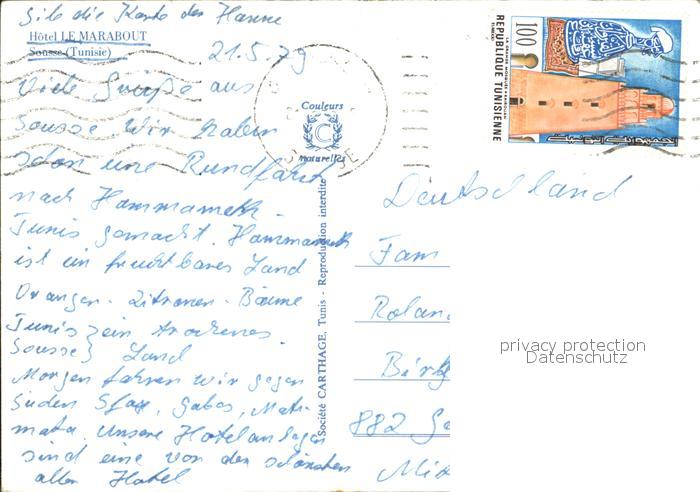 Gib die Karte der Hanne
Hôtel LE MARABOUT
Sousse (Tunisie)
21.5.79
Viele Grüße aus
Sousse. Wir haben
schon eine Rundfahrt
nach Hammameth.
Tunis gemacht. Hammameth
ist ein fruchtbares Land
Orangen- Zitronen- Bäume
Tunis } ein trockenes
Sousse } Land
Morgen fahren wir gegen
Süden Sfax, Gabes, Mat-
mata. Unsere Hotelanlagen
sind eine von den schönsten
aller Hotel
Couleurs
C
Naturelles
Société CARTHAGE, Tunis - Reproduction interdite
100
REPUBLIQUE TUNISIENNE
LA GRANDE MOSQUEE KAIROUAN
الجمهورية التونسية
Deutschland
Fam
Rolan
Birk
882 Gu
Mit
privacy protection
Datenschutz